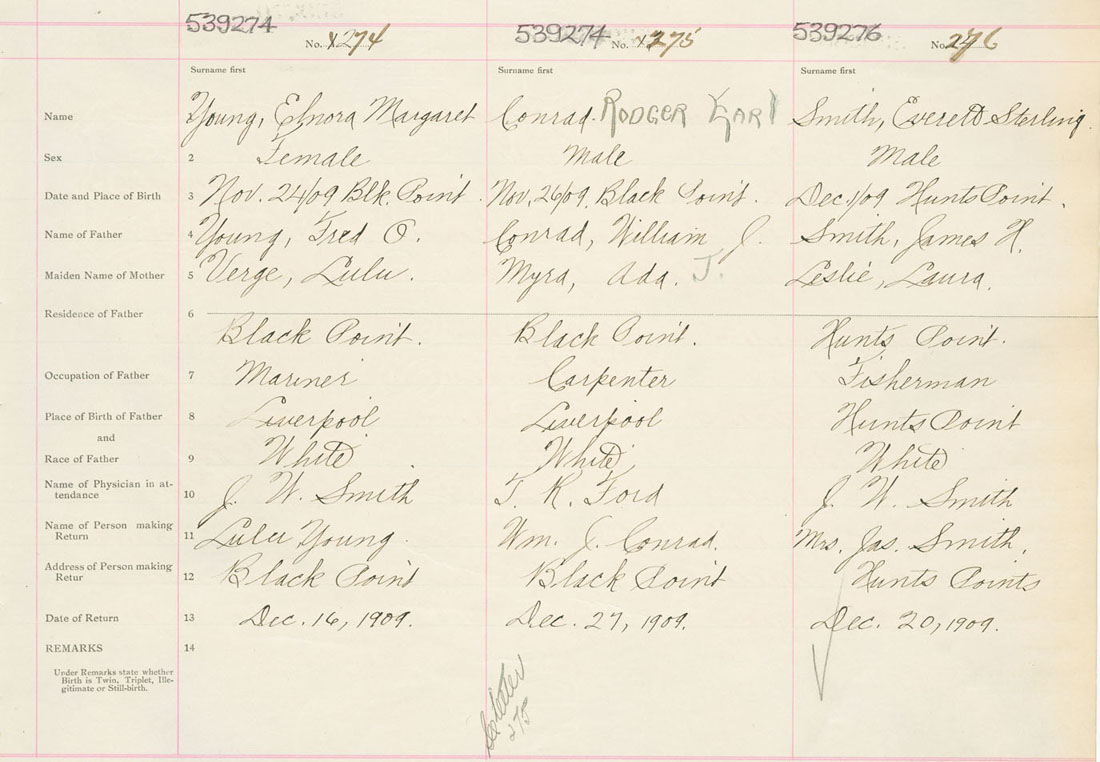 539274 539274 539276
No. x274 No. x275 No. 276
Surname first Surname first Surname first
Name Young, Elnora Margaret Conrad. RODGER EARl Smith, Everett Sterling.
Sex 2 Female Male Male
Date and Place of Birth 3 Nov. 24/09 Blk. Point. Nov. 26/09. Black Point. Dec. 1/09 Hunts Point.
Name of Father 4 Young, Fred O. Conrad, William J. Smith, James H.
Maiden Name of Mother 5 Verge, Lulu. Myra, Ada. J. Leslie, Laura.
Residence of Father 6
Black Point. Black Point. Hunts Point.
Occupation of Father 7 Mariner Carpenter Fisherman
Place of Birth of Father 8 Liverpool Liverpool Hunts Point
and
Race of Father 9 White White White
Name of Physician in at-
tendance 10 J. W. Smith T. R. Ford J. W. Smith
Name of Person making
Return 11 Lulu Young. Wm. J. Conrad. Mrs. Jas. Smith.
Address of Person making
Retur 12 Black Point Black Point Hunts Points
Date of Return 13 Dec. 16, 1909. Dec. 27, 1909. Dec. 20, 1909.
REMARKS 14
Under Remarks state whether
Birth is Twin, Triplet, Ille-
gitimate or Still-birth.
See letter
275